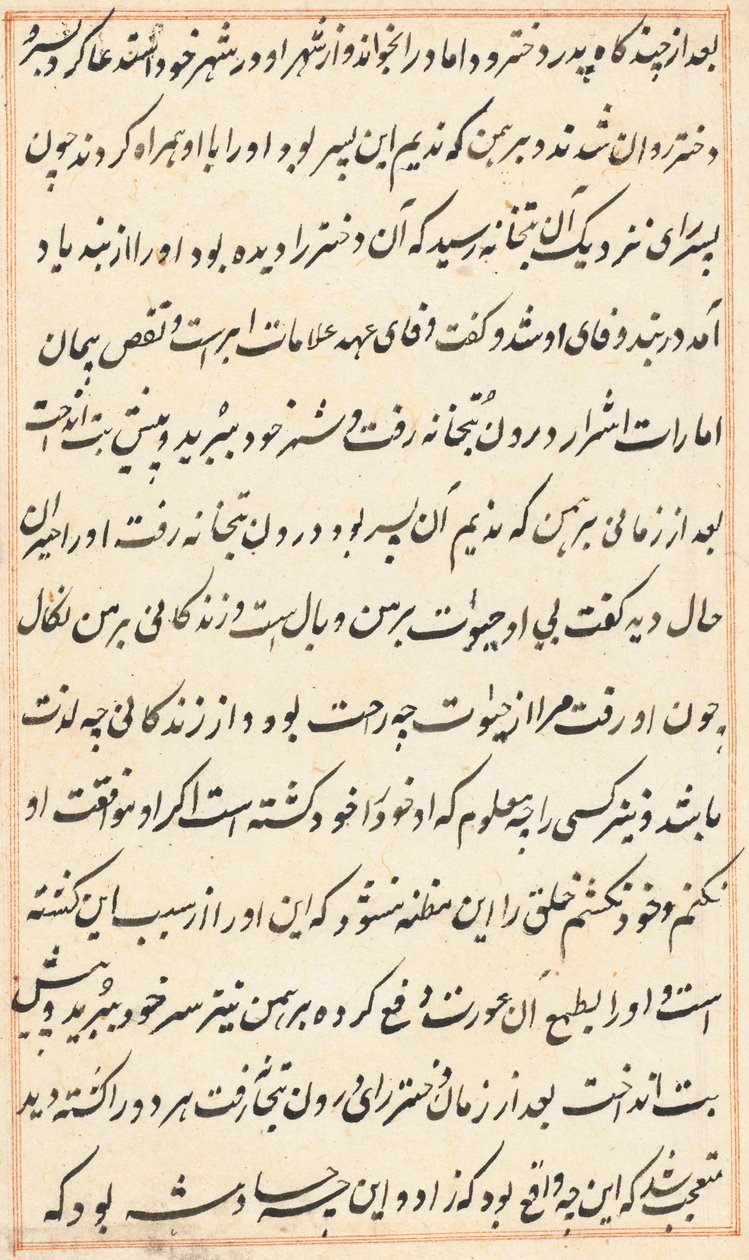 بعد از چند کاه پدر دختر و داماد را بخواند و از شهر او در شهر خود استدعا کرد پسر و
دختر روان شدند و برهمن که ندیم این پسر بود او را با او همراه کردند چون
پسر رای نزدیک آن بتخانه رسید که آن دختر را دیده بود او را از بند یاد
آمد در بند وفای او شد و کفت وفای عهد علامات ابرار است و نقص پیمان
امارات اشرار درون بتخانه رفت و سر خود ببرید و پیش بت انداخت
بعد از زمانی برهمن که ندیم آن پسر بود درون بتخانه رفت او را حیران
حال دید کفت بی او حیوات بر من وبال است و زندکانی بر من نکال
چون او رفت مرا از حیوات چه راحت بود و از زندکانی چه لذت
باشد و نیز کسی را چه معلوم که او خود را خود کشته است اکر او موافقت او
نکنم و خود نکشم خلق را این مظنه شود که این او را از سبب این کشته
است و او را بطمع آن عورت دفع کرده برهمن نیز سر خود ببرید و پیش
بت انداخت بعد از زمان دختر رای درون بتخانه رفت هر دو را کشته دید
متعجب شد که این چه واقع بود که زاد و این چه حادثه بود که